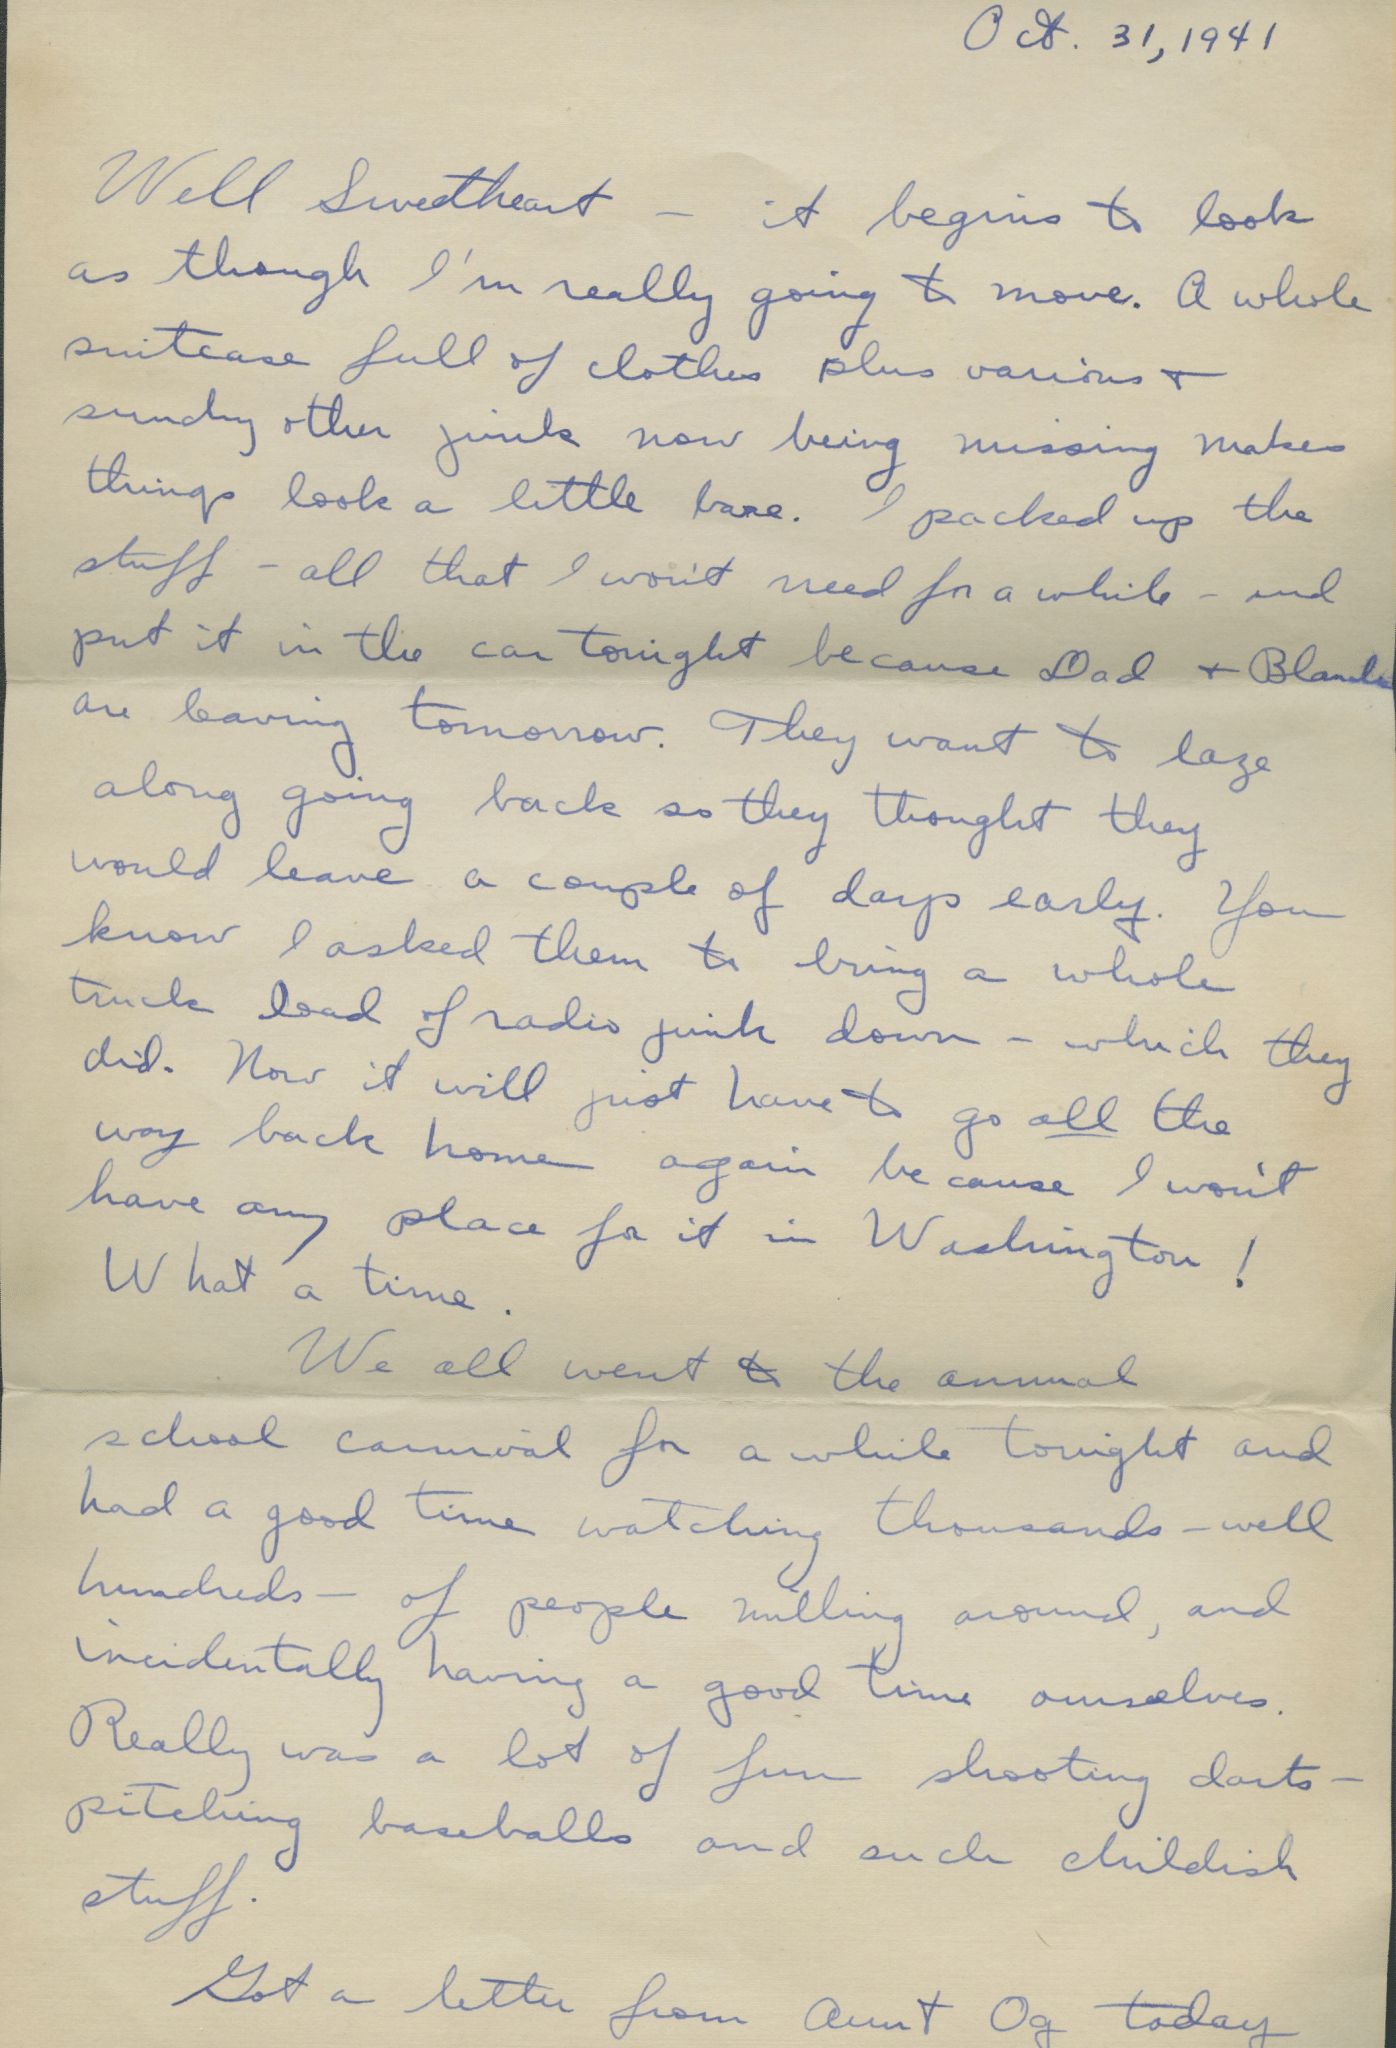 Oct. 31, 1941
Well Sweetheart — it begins to look
as though I'm really going to move. A whole
suitcase full of clothes plus various +
sundry other junk now being missing makes
things look a little bare. I packed up the
stuff — all that I won't need for a while — and
put it in the car tonight because Dad + Blanche
are leaving tomorrow. They want to laze
along going back so they thought they
would leave a couple of days early. You
know I asked them to bring a whole
truck load of radio junk down — which they
did. Now it will just have to go all the
way back home again because I won't
have any place for it in Washington!
What a time.
We all went to the annual
school carnival for a while tonight and
had a good time watching thousands — well
hundreds — of people milling around, and
incidentally having a good time ourselves.
Really was a lot of fun shooting darts —
pitching baseballs and such childish
stuff.
Got a letter from Aunt Og today